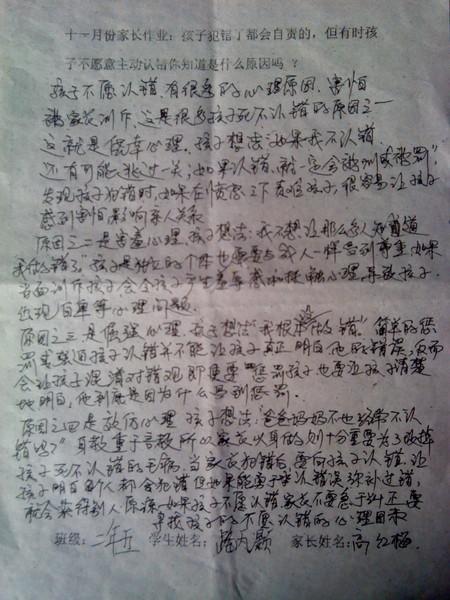 十一月份家长作业：孩子犯错了都会自责的，但有时孩
子不愿意主动认错你知道是什么原因吗？
孩子不愿认错，有很多的心理原因，害怕
被家长训斥，这是很多孩子死不认错的原因之一
这就是侥幸心理，孩子想法：如果我不认错，
还有可能逃过一关；如果认错，就一定会被训或被罚"。
发现孩子犯错时，如果在愤怒之下责难孩子，很容易让孩子
感到害怕，影响亲人关系
原因之二是害羞心理，孩子想法：我不想让那么多人知道
我做错了，孩子是独立的个体也需要与成人一样受到尊重，如果
当面训斥孩子会令孩子产生羞辱感和抵触心理，导致孩子
出现自卑等心理问题。
原因之三，是倔强心理，孩子想法"我根本没做错"简单的惩
罚或强迫孩子认错并不能让孩子真正明白他的错误，反而
会让孩子混淆对错观，即便要惩罚孩子也要让孩子清楚
地明白，他到底是因为什么受到惩罚。
原因之四是放仿心理 孩子想法："爸爸妈妈不也经常不认
错吗？"身教重于言教，所以家长以身作则十分重要，为了改掉
孩子死不认错的毛病，当家长犯错后，要向孩子认错，让
孩子明白每个人都会犯错，但如果能勇于承认错误，弥补过错，
就会获得别人原谅，如果孩子不愿认错，家长不要急于纠正，要
寻找孩子的不愿认错的心理因素
班级：二年五 学生姓名：颖 家长姓名：高红梅